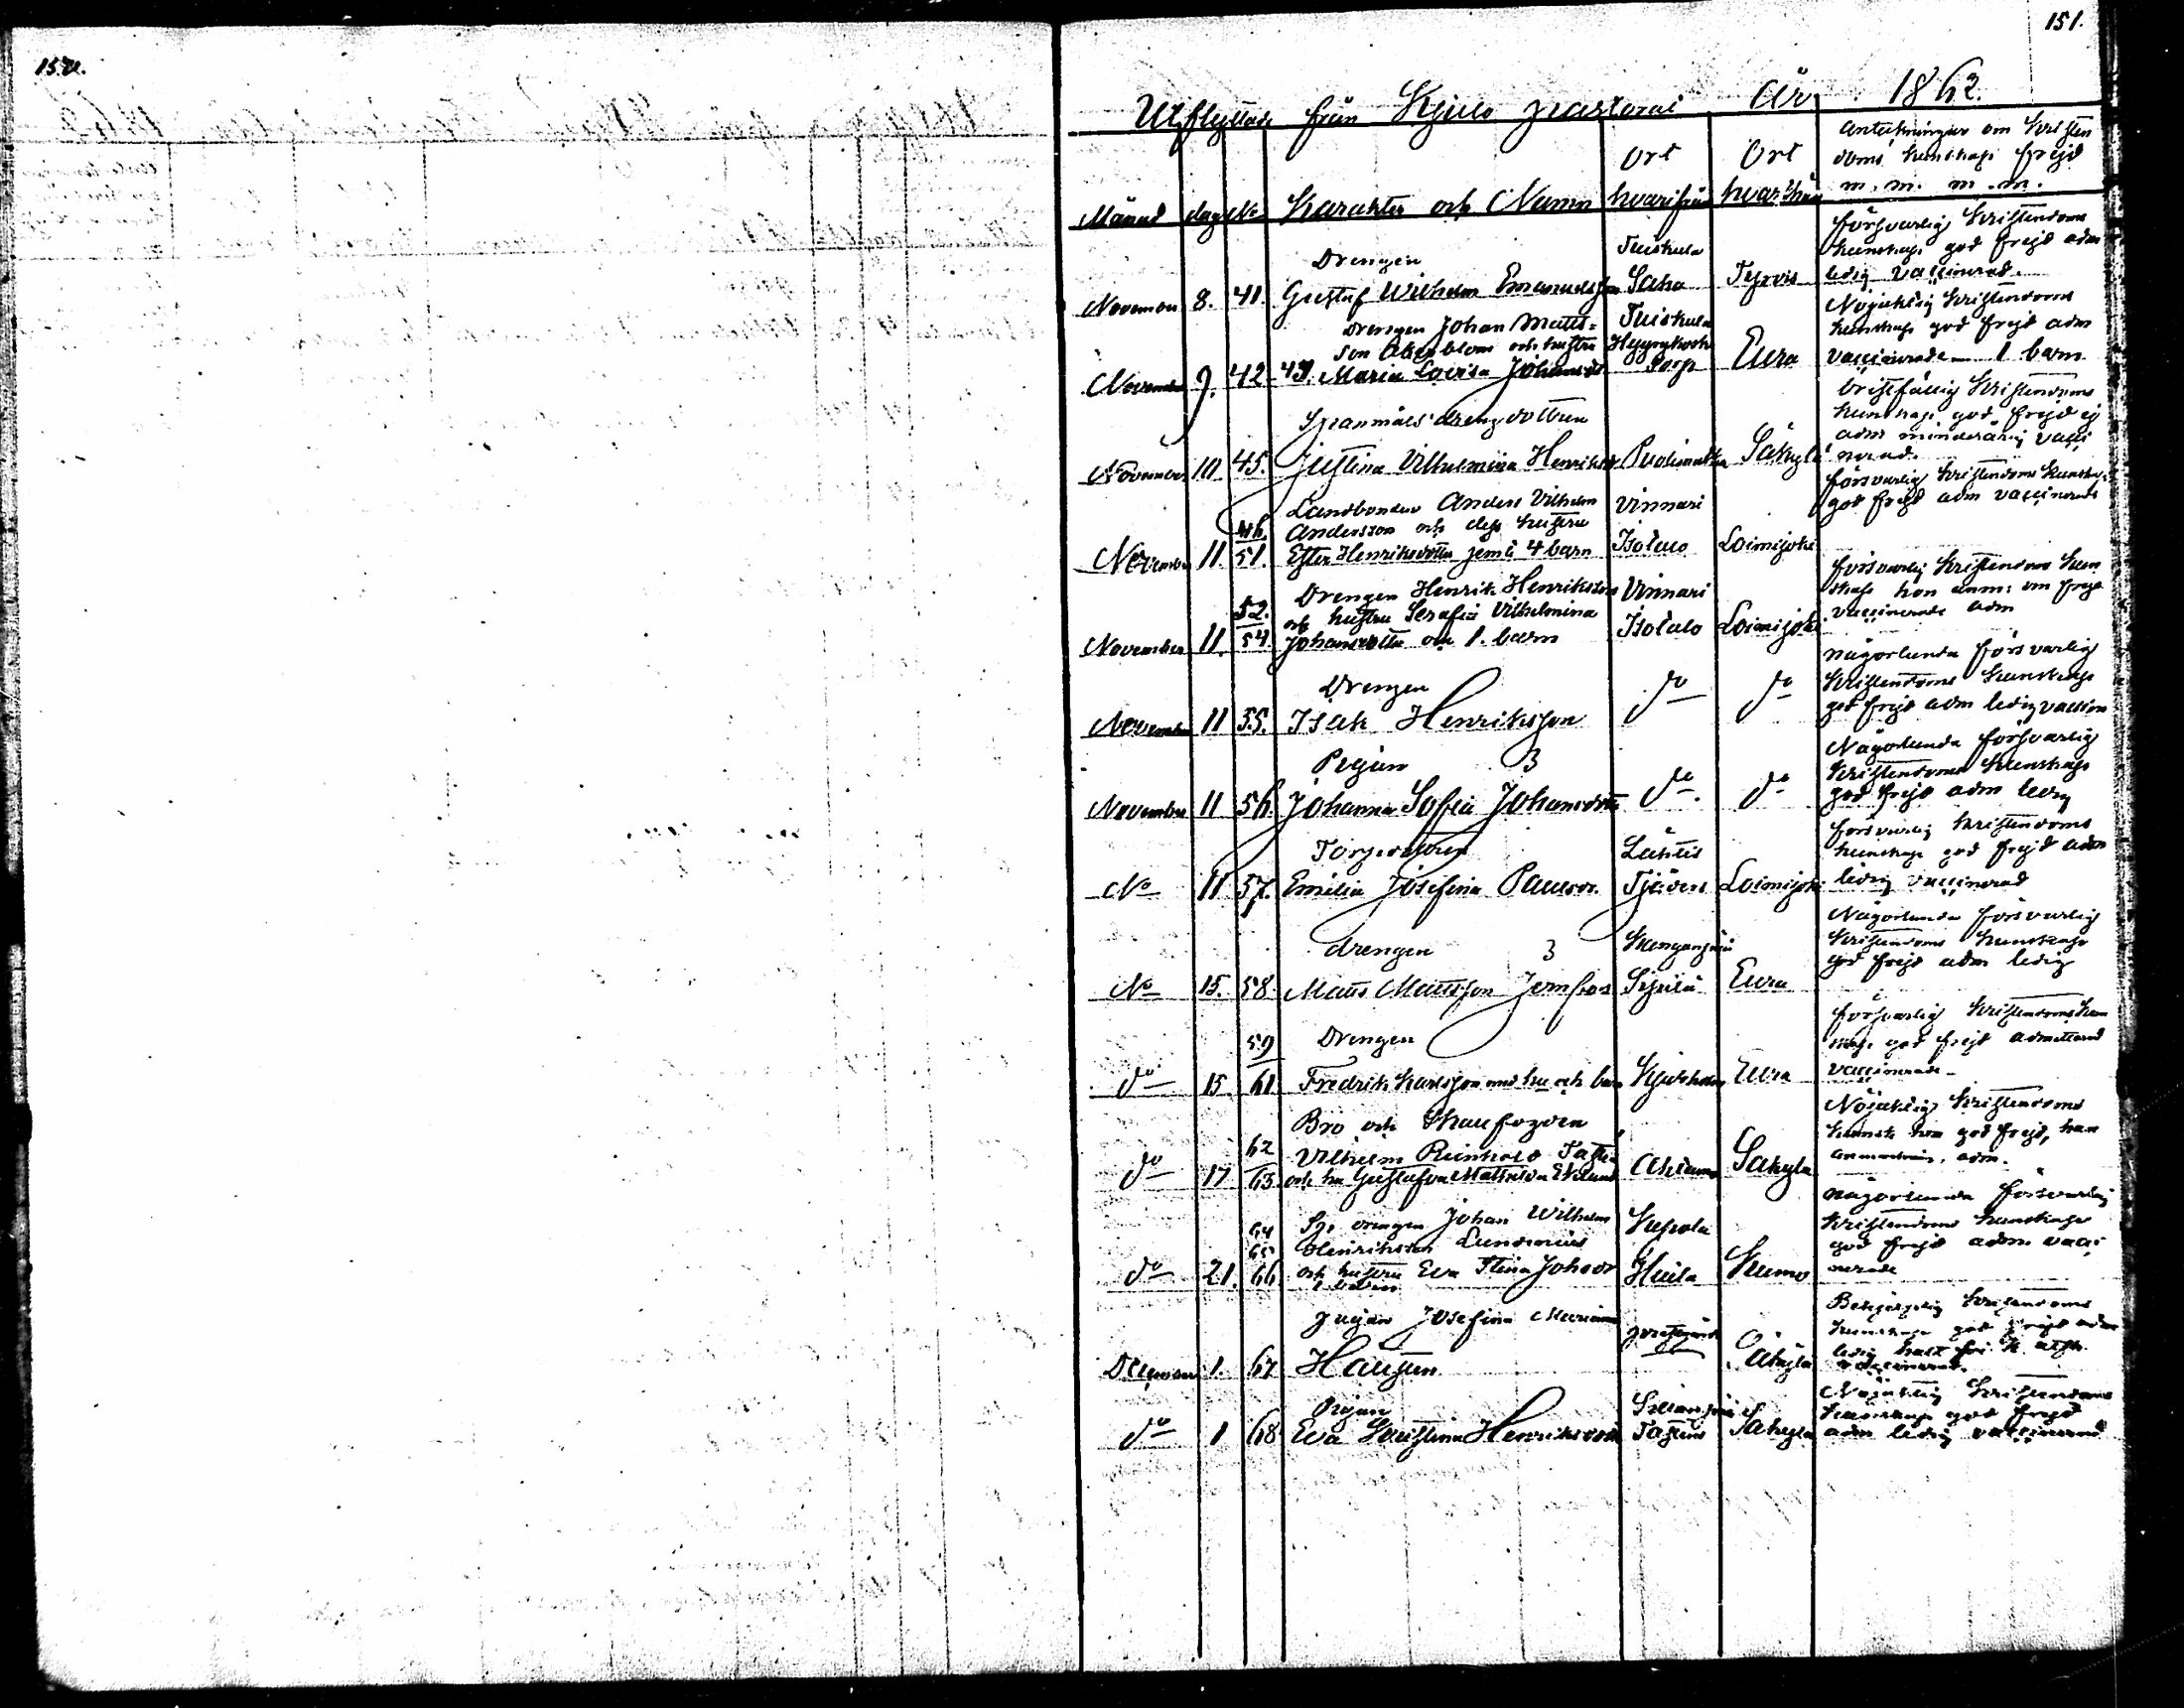 151.
Utflyttade från Kjulo pastorat År 1862.
Månad dag No Karakter och Namn Ort hvarifrån Ort hvarthän Anteckningar om Kristen
doms kunskap frejd
m. m. m. m.
Drengen Tuiskula försvarlig Kristendoms
kunskap god frejd adm
November 8. 41. Gustaf Wilhelm Emanuelsson Saha Tyrvis ledig vaccinerad.
Drengen Johan Matts- Tuiskula Nöjaktig Kristendoms
son Åkerblom och hustru kunskap god frejd adm
November 9. 42-43. Maria Lovisa Johansd Torp Eura vaccinerade 1 barn
Spanmåls drengdottren bristfällig Kristendoms
kunskap god frejd ej
adm minderårig vacci
November 10 45. Justina Vilhelmina Henriksd Säkylä nerad.
Landbonden Anders Vilhelm Vinnari försvarlig Kristendoms kunskap
46. Andersson och dess hustru god frejd adm vaccinerade
November 11. 51. Ester Henriksdotter jemte 4 barn Isotalo Loimijoki
Drengen Henrik Henriksson Vinnari försvarlig Kristendoms kun
52. och hustru Serafia Vilhelmina skap hon anm: om frejd
November 11. 54. Johansdotter och 1. barn Isotalo Loimijoki vaccinerade adm
Drengen någorlunda försvarlig
Kristendoms kunskap
November 11 55. Isak Henriksson do do god frejd adm ledig vaccin
Pigan Någorlunda försvarlig
Kristendoms kunskap
November 11 56. Johanna Sofia Johansdotter do. do god frejd adm ledig
Torp.dottren Lähteis försvarlig Kristendoms
kunskap god frejd adm
No 11 57. Emilia Josefina Paulsdr. Tjäders Loimijoki ledig vaccinerad
drengen Någorlunda försvarlig
Kristendoms kunskap
god frejd adm ledig
No 15. 58. Matts Mattsson Jernfors Eura
59 Drengen försvarlig Kristendoms kun
skap god frejd admitterad
do 15. 61. Fredrik Karlsson med hu och barn Kjuloholm Eura vaccinerade
Bro och Skallfogden Nöjaktig Kristendoms
62 Vilhelm Reinhold kunsk hon god frejd, han
do 17 63. och hu Gustafva Mathilda Eklund Säkylä adm.
64 Sp. drengen Johan Wilhelm Kepola någorlunda försvarlig
65 Henriksson Lundenius Kristendoms kunskap
do 21. 66. och hustru Eva Stina Johsdr Kumo god frejd adm vacci
1 barn nerade
pigan Josefina Maria prestgård Kristendoms
kunskap god frejd adm
December 1. 67 Säkylä ledig
vaccinerad.
Pigan Nöjaktig Kristendoms
kunskap god frejd
do 1 68 Eva Kristina Henriksdotter Säkylä adm ledig vaccinerad